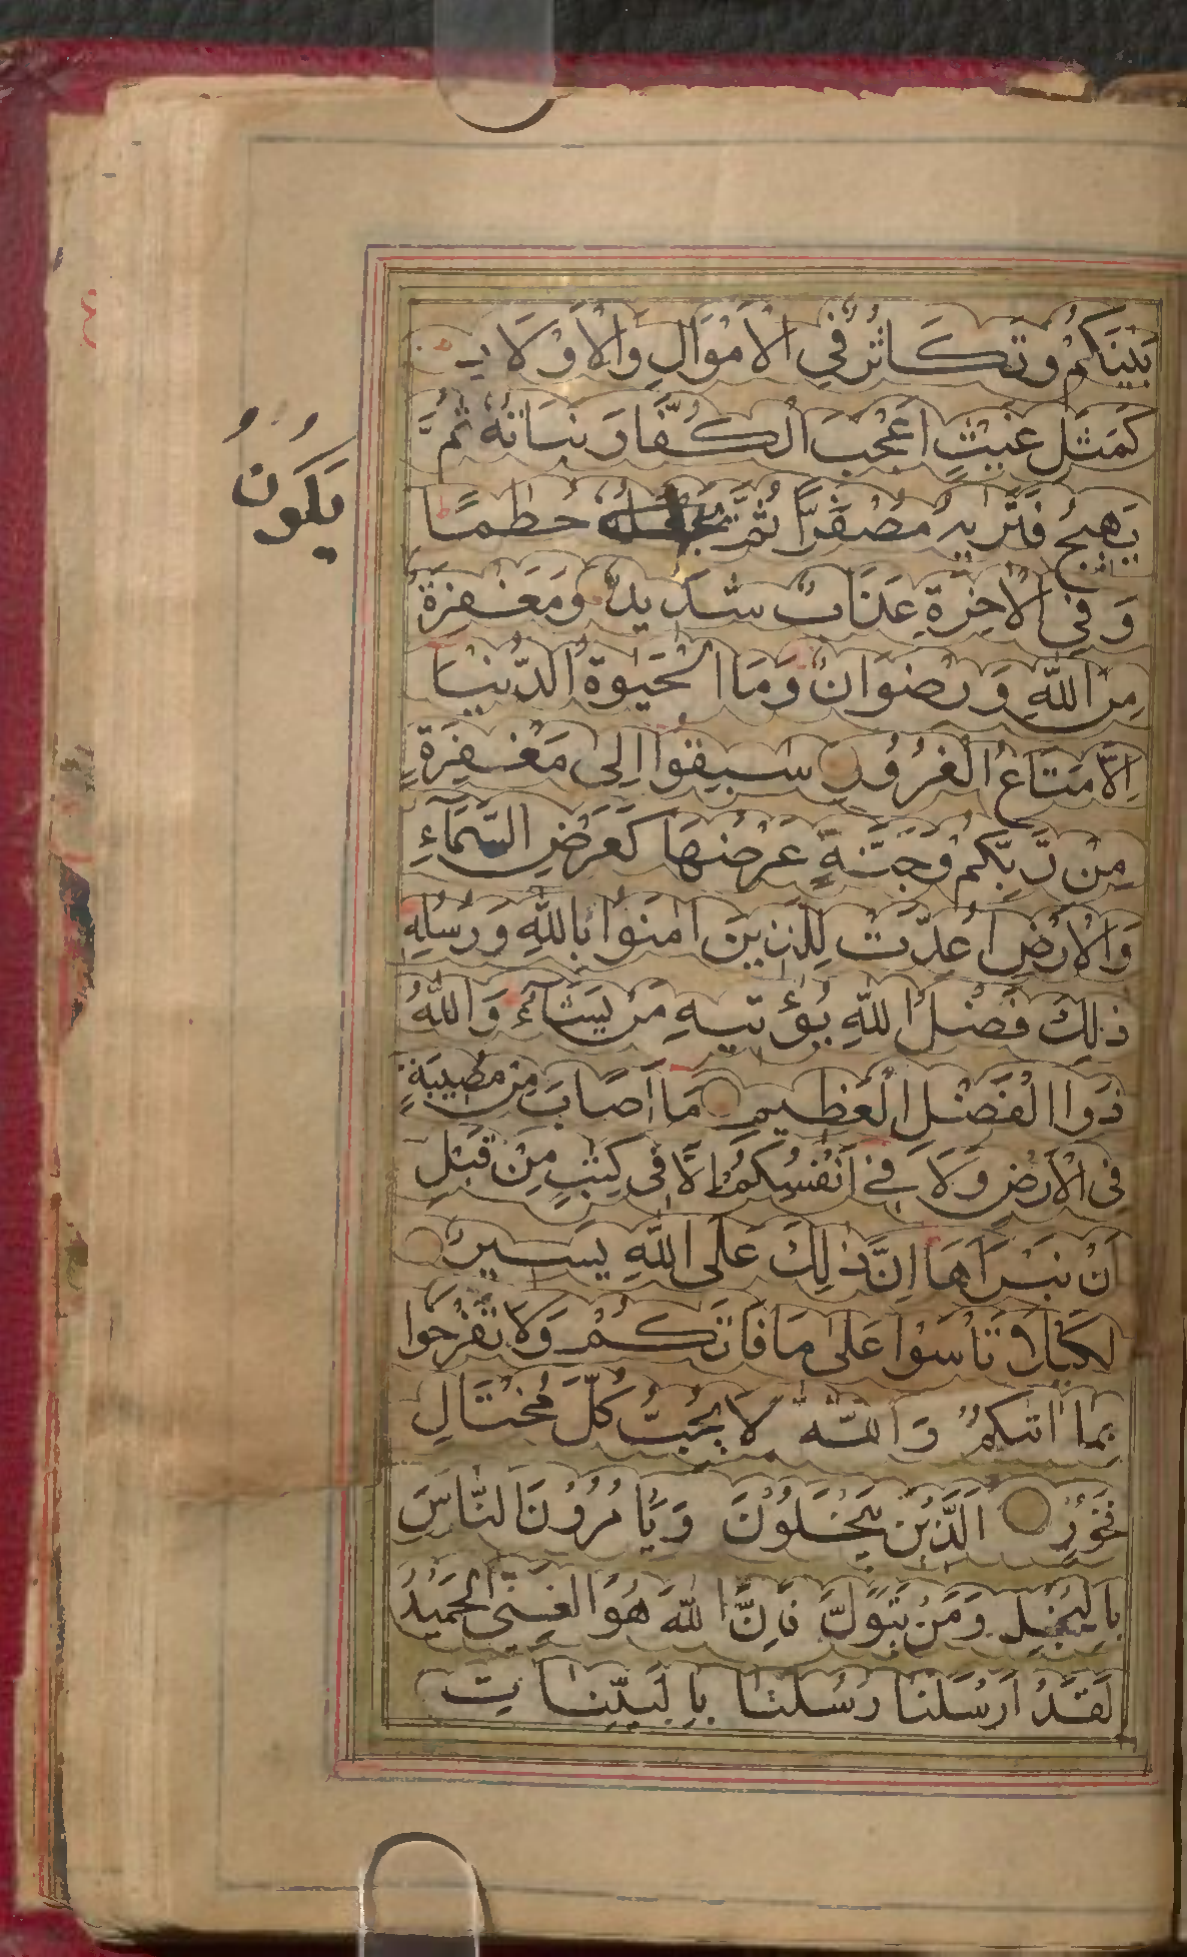 بَيْنَكُمْ وَتَكَاثُرٌ فِي الْاَمْوَالِ وَالْاَوْلَادِ
كَمَثَلِ غَيْثٍ اَعْجَبَ الْكُفَّارَ نَبَاتُهُ ثُمَّ
يَهِيجُ فَتَرٰيهُ مُصْفَرًّا ثُمَّ حُطٰمًا
يَكُونُ
وَفِي الْاٰخِرَةِ عَذَابٌ شَدِيدٌ وَمَغْفِرَةٌ
مِنَ اللّٰهِ وَرِضْوَانٌ وَمَا الْحَيٰوةُ الدُّنْيَا
اِلَّا مَتَاعُ الْغُرُورِ سَبِقُوا اِلٰى مَغْفِرَةٍ
مِنْ رَّبِّكُمْ وَجَنَّةٍ عَرْضُهَا كَعَرْضِ السَّمَآءِ
وَالْاَرْضِ اُعِدَّتْ لِلَّذِينَ اٰمَنُوا بِاللّٰهِ وَرُسُلِهِ
ذٰلِكَ فَضْلُ اللّٰهِ يُؤْتِيهِ مَنْ يَشَآءُ وَاللّٰهُ
ذُوا الْفَضْلِ الْعَظِيمِ مَا اَصَابَ مِنْ مُصِيبَةٍ
فِى الْاَرْضِ وَلَا فِى اَنْفُسِكُمْ اِلَّا فِى كِتٰبٍ مِنْ قَبْلِ
اَنْ نَبْرَاَهَا اِنَّ ذٰلِكَ عَلَى اللّٰهِ يَسِيرٌ
لِكَيْلَا تَاْسَوْا عَلٰى مَا فَاتَكُمْ وَلَا تَفْرَحُوا
بِمَا اٰتٰىكُمْ وَاللّٰهُ لَا يُحِبُّ كُلَّ مُخْتَالٍ
فَخُورٍ اَلَّذِينَ يَبْخَلُونَ وَيَاْمُرُونَ النَّاسَ
بِالْبُخْلِ وَمَنْ يَتَوَلَّ فَاِنَّ اللّٰهَ هُوَ الْغَنِىُّ الْحَمِيدُ
لَقَدْ اَرْسَلْنَا رُسُلَنَا بِالْبَيِّنَاتِ